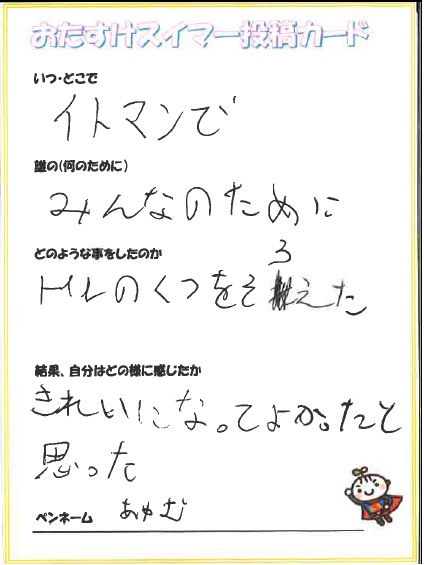 おたすけスイマー投稿カード
いつ・どこで
イトマンで
誰の(何のために)
みんなのために
どのような事をしたのか
トイレのくつをそろえた
結果、自分はどの様に感じたか
きれいになってよかったと
思った
ペンネーム あゆむ